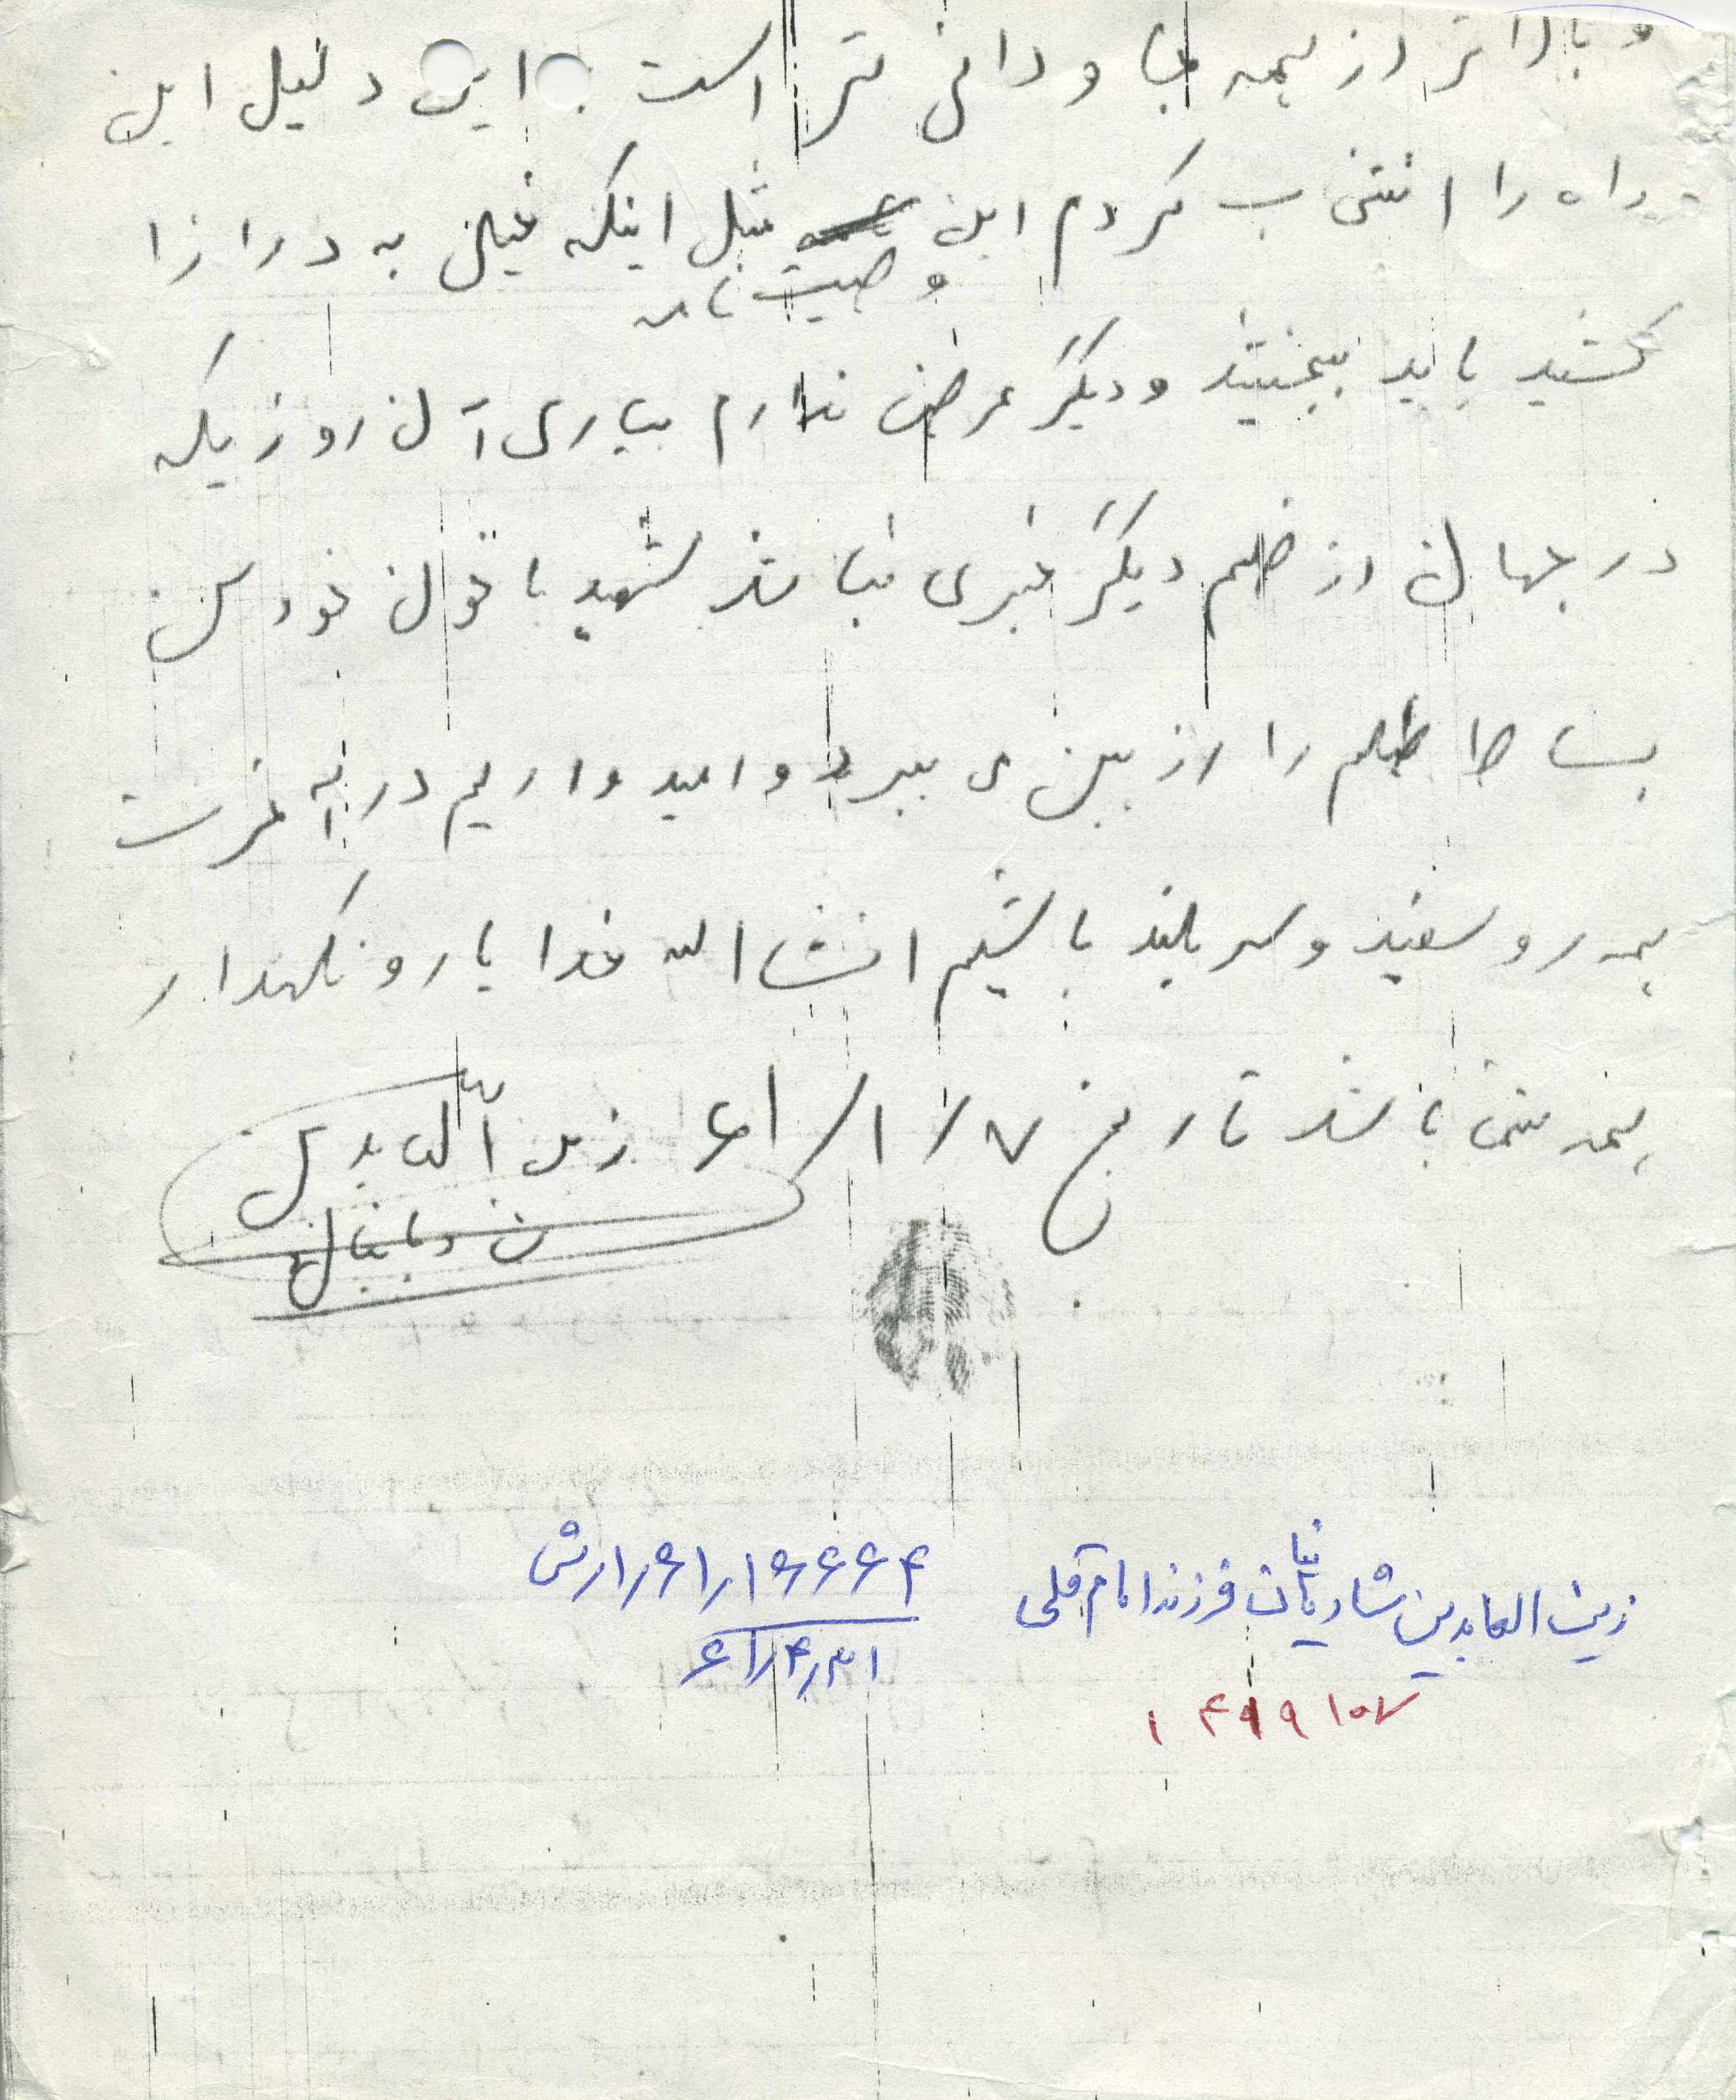 و بالاتر از همه جاودانی تر است . این دلیل این
راه را انتخاب کردم این مثل اینکه خیلی به درازا
وصیت نامه
کشید باید ببخشید و دیگر عرضی ندارم بیاری آن روزیکه
در جهان از ضلم دیگر خبری نباشد شهید با خون خودش
بساط ظلم را از بین می برد و امیدواریم در آخرت
همه رو سفید و سر بلند باشیم انشاالله خدا یار و نگهدار
همه شما باشد تاریخ ۷/۱/۶۱ زین العابدین
زین العابدین شادیان فرزند امام قلی
۱۶۶۶۴/۱/۶۱/ارش
۶۱/۴/۳۱
۱۴۹۹۱۰۷